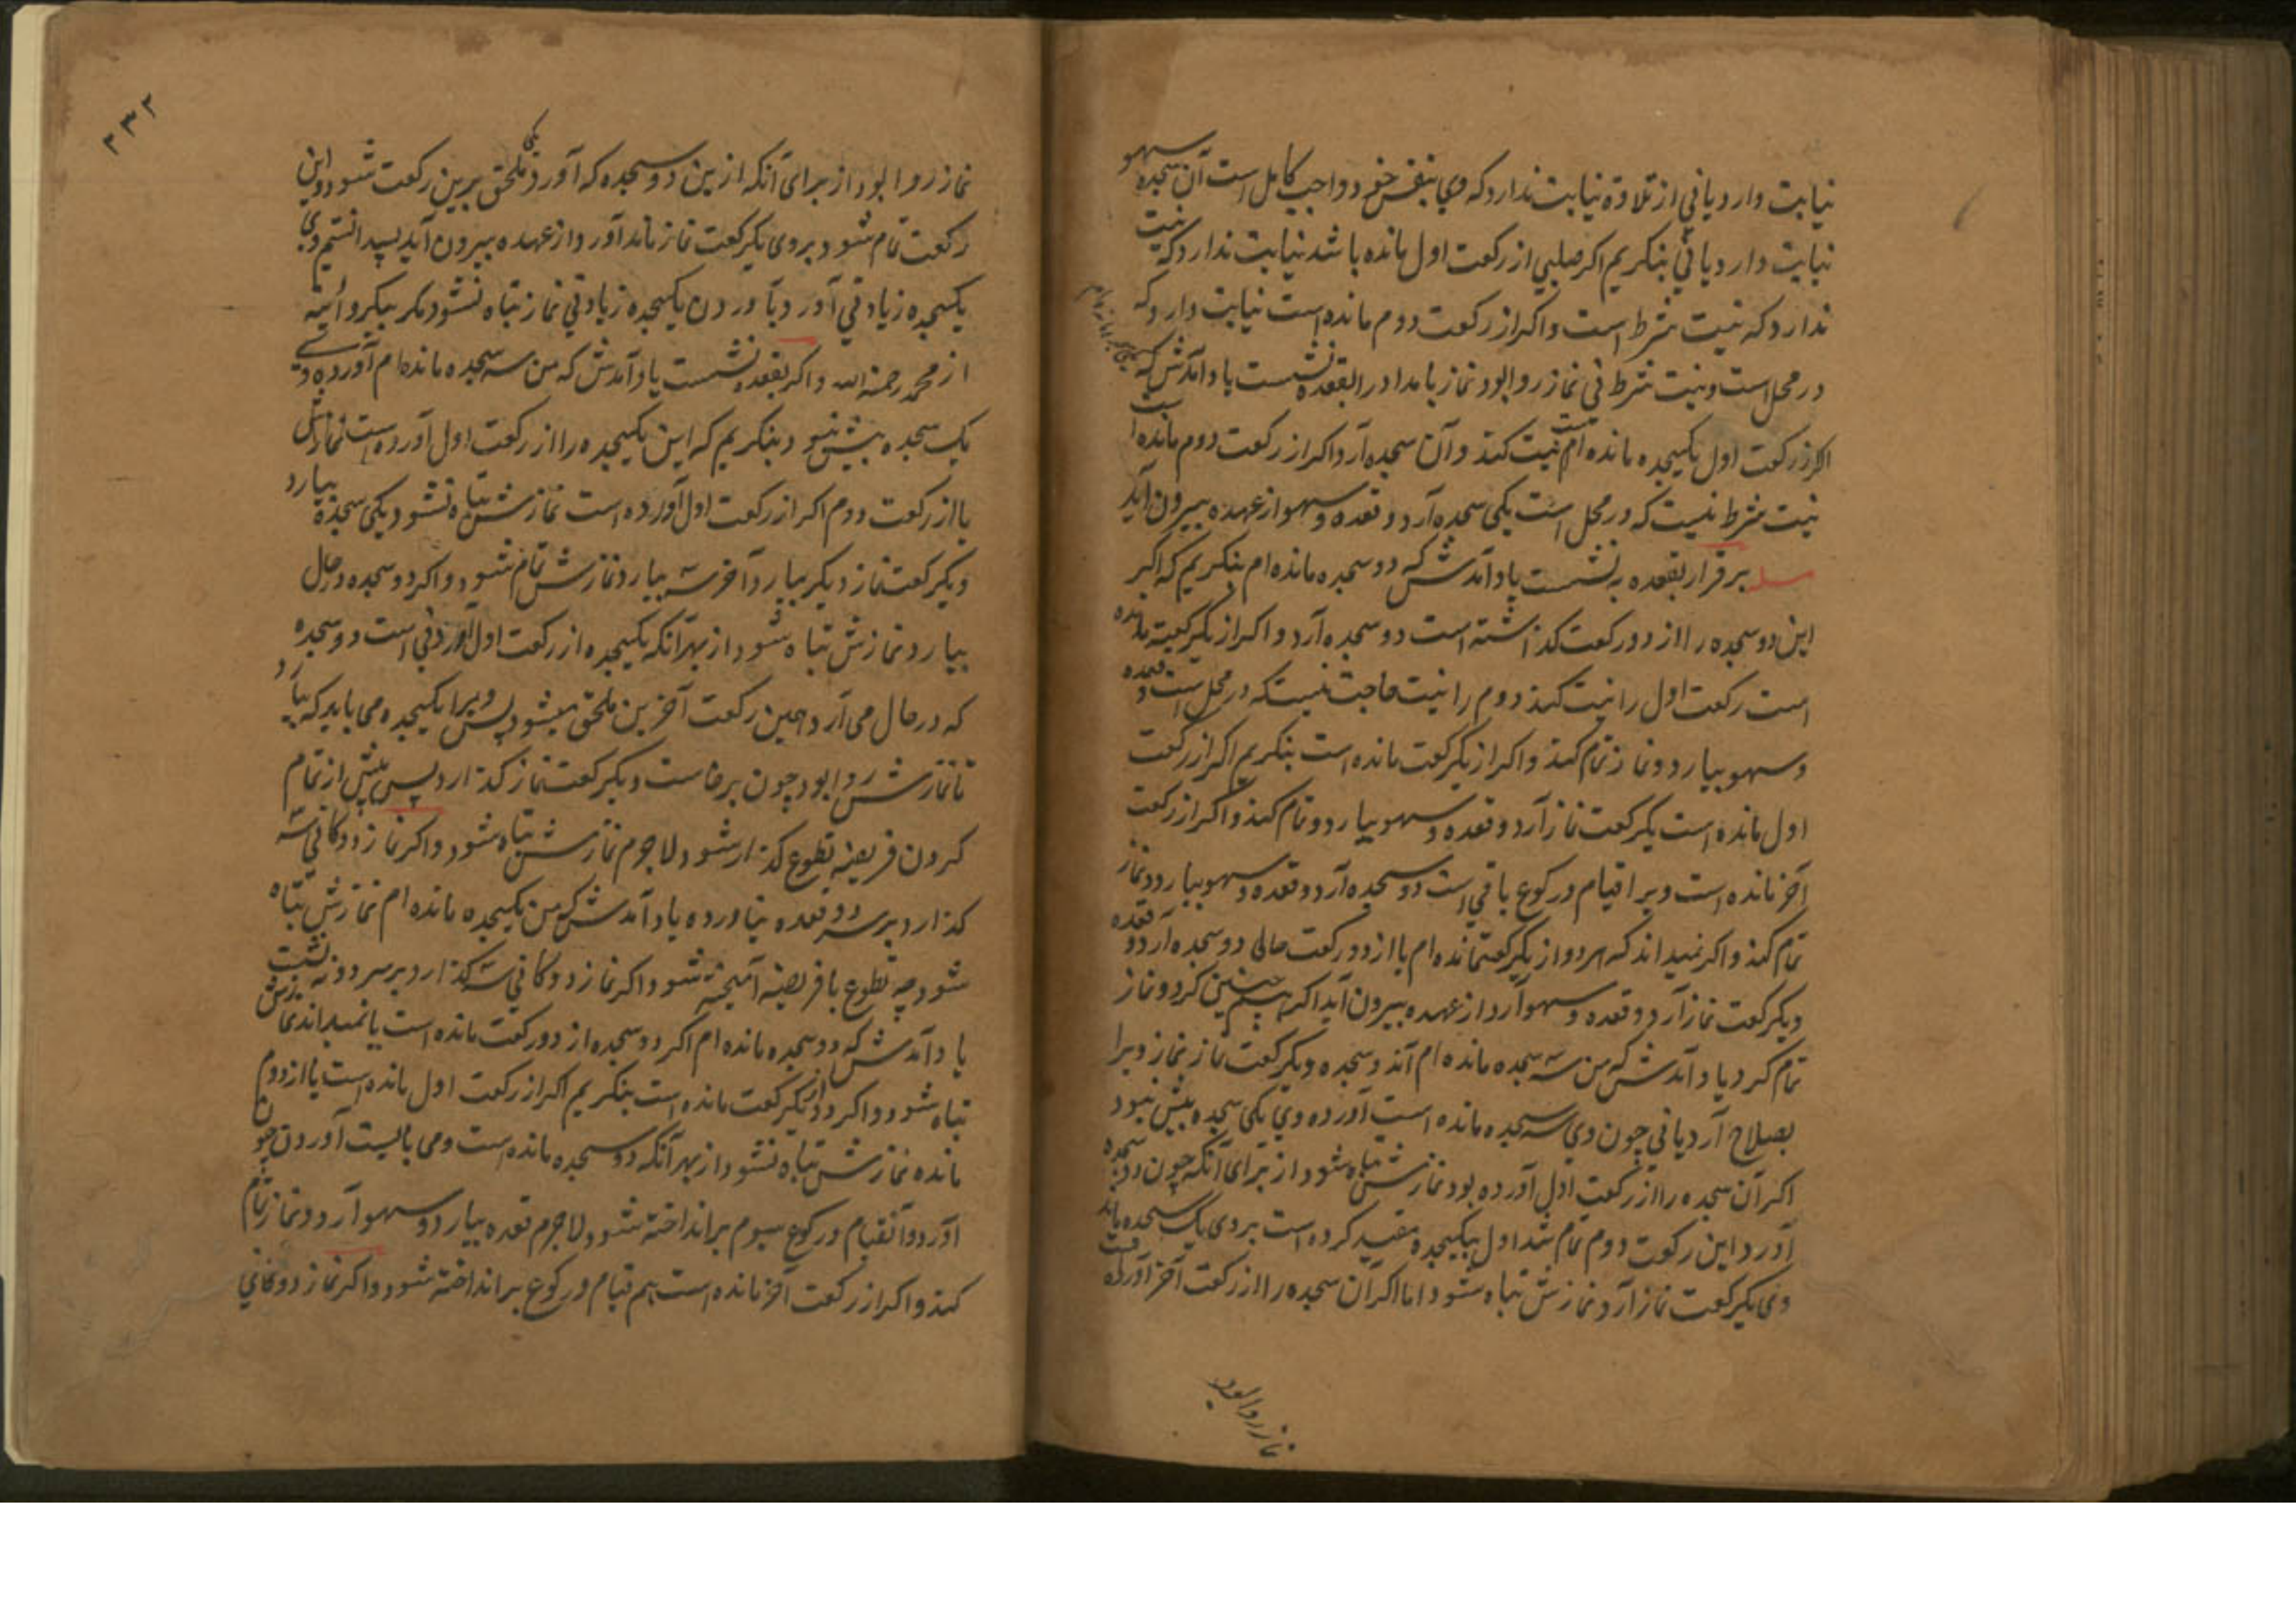 نیابت دارد یا نی از تلاوة نیابت ندارد که وی بنفس خود واجب کامل است آن سجده سهو
نیابت دارد یا نی بنکریم اکر صلبی از رکعت اول مانده باشد نیابت ندارد که نیت
ندارد که نیت شرط است و اکر از رکعت دوم مانده است نیابت دارد که
در محل است و نیت شرط نی نماز روا بود نماز بامداد را بقعده نشست یاد آمدش که
اکر از رکعت اول یکسجده مانده ام نیت کند و آن سجده آرد و اکر از رکعت دوم مانده است
نیت شرط نیست که در محل است یکی سجده آرد و قعده و سهو از عهده بیرون آید
مسله بر قرار بقعده به نشست یاد آمدش که دو سجده مانده ام بنکریم که اکر
این دو سجده را از دو رکعت کذاشته است دو سجده آرد و اکر از یکرکعت مانده
است رکعت اول را نیت کند دوم را نیت حاجت نیست که در محل است و قعده
و سهو بیارد و نماز تمام کند و اکر از یکرکعت مانده است بنکریم اکر از رکعت
اول مانده است یکرکعت نماز آرد و قعده و سهو بیارد و تمام کند و اکر از رکعت
آخر مانده است ویرا قیام و رکوع باقی است دو سجده آرد و قعده و سهو بیارد و نماز
تمام کند و اکر نمیداند که هر دو از یکرکعت مانده ام یا از دو رکعت حالی دو سجده آرد و قعده
و یکرکعت نماز آرد و قعده و سهو آرد از عهده بیرون آید اکر همچنین کرد و نماز
تمام کرد یاد آمدش که من سه سجده مانده ام آن دو سجده و یکرکعت نماز نماز ویرا
بصلاح آرد یا نی چون وی سه سجده مانده است آورده وی یکی سجده بیش نبود
اکر آن سجده را از رکعت اول آورده بود نمازش تباه شود از برای آنکه چون دو سجده
آورد این رکعت دوم تمام شد اول بیکسجده مقید کرده است بر وی یک سجده ماند
وی یکرکعت نماز آرد نمازش تباه شود اما اکر آن سجده را از رکعت آخر آورده است
نماز روا بود
۲۳۲
نماز روا بود از برای آنکه ازین دو سجده که آورد یکی ملحق برین رکعت شود و این
رکعت تمام شود بر وی یکرکعت نماز ماند آورد و از عهده بیرون آید پس دانستیم وی
یکسجده زیادتی آورد و بآوردن یکسجده زیادتی نماز تباه نشود مکر بیکروایتیه
از محمد رحمة الله و اکر بقعده نشست یاد آمدش که من سه سجده مانده ام آورده وی
یک سجده بیش نبود بنکریم که این یکسجده را از رکعت اول آورده است نمازش
یا از رکعت دوم اکر از رکعت اول آورده است نمازش تباه نشود یکی سجده بیارد
و یکرکعت نماز دیکر بیارد آخر سه بیارد نمازش تمام شود و اکر دو سجده در حال
بیارد نمازش تباه شود از بهر آنکه یکسجده از رکعت اول آوردنی است دو سجده
که در حال می آرد همین رکعت آخرین ملحق میشود پس ویرا یکسجده می باید که بیارد
تا نمازش روا بود چون برخاست و یکرکعت نماز کذارد پس پیش از تمام
کردن فریضه تطوع کذار شود لاجرم نمازش تباه شود و اکر نماز دوکانی سه
کذارد بر سر دو قعده نیاورده یاد آمدش که من یکسجده مانده ام نمازش تباه
شود چه تطوع با فریضه آمیخته شود و اکر نماز دوکانی سه کذارد بر سر دو نه نشست
یاد آمدش که دو سجده مانده ام اکر دو سجده از دو رکعت مانده است یا نمیداند نمازش
تباه شود و اکر دو از یکرکعت مانده است بنکریم اکر از رکعت اول مانده است یا از دوم
مانده نمازش تباه نشود از بهر آنکه دو سجده مانده است و می بایست آوردن چون
آورد و آن قیام و رکوع سیوم برانداخته شود لاجرم قعده بیارد و سهو آرد و نماز تمام
کند و اکر از رکعت آخر مانده است هم قیام و رکوع برانداخته شود و اکر نماز دوکانی